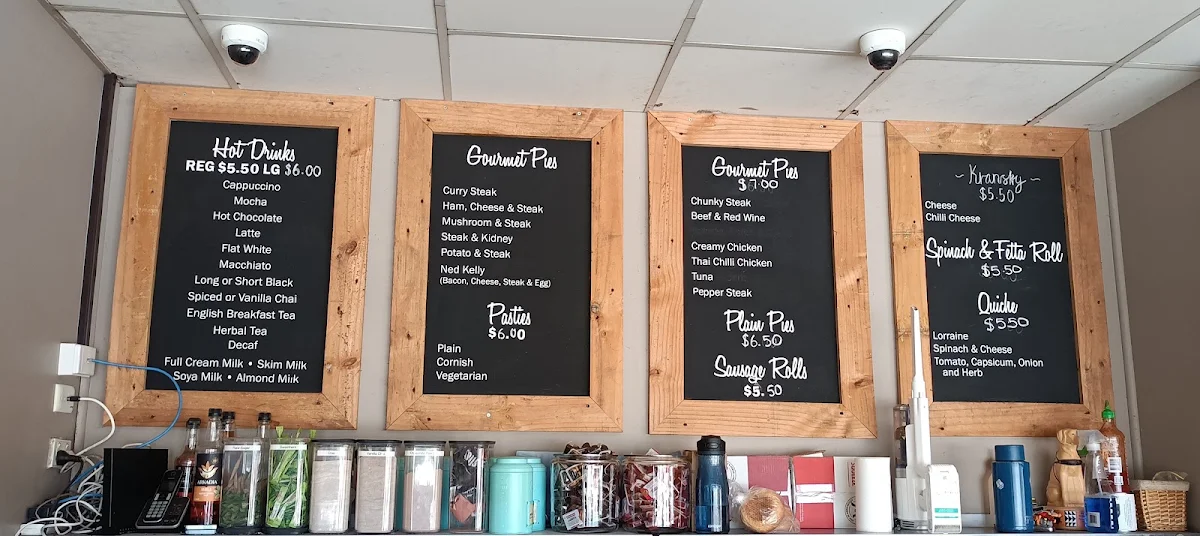 Hot Drinks
REG $5.50 LG $6.00
Cappuccino
Mocha
Hot Chocolate
Latte
Flat White
Macchiato
Long or Short Black
Spiced or Vanilla Chai
English Breakfast Tea
Herbal Tea
Decaf
Full Cream Milk • Skim Milk
Soya Milk • Almond Milk
Gourmet Pies
Curry Steak
Ham, Cheese & Steak
Mushroom & Steak
Steak & Kidney
Potato & Steak
Ned Kelly
(Bacon, Cheese, Steak & Egg)
Pasties
$6.00
Plain
Cornish
Vegetarian
Gourmet Pies
$7.00
Chunky Steak
Beef & Red Wine
Creamy Chicken
Thai Chilli Chicken
Tuna
Pepper Steak
Plain Pies
$6.50
Sausage Rolls
$5.50
~ Kransky ~
$5.50
Cheese
Chilli Cheese
Spinach & Fetta Roll
$5.50
Quiche
$5.50
Lorraine
Spinach & Cheese
Tomato, Capsicum, Onion
and Herb
ARKADIA